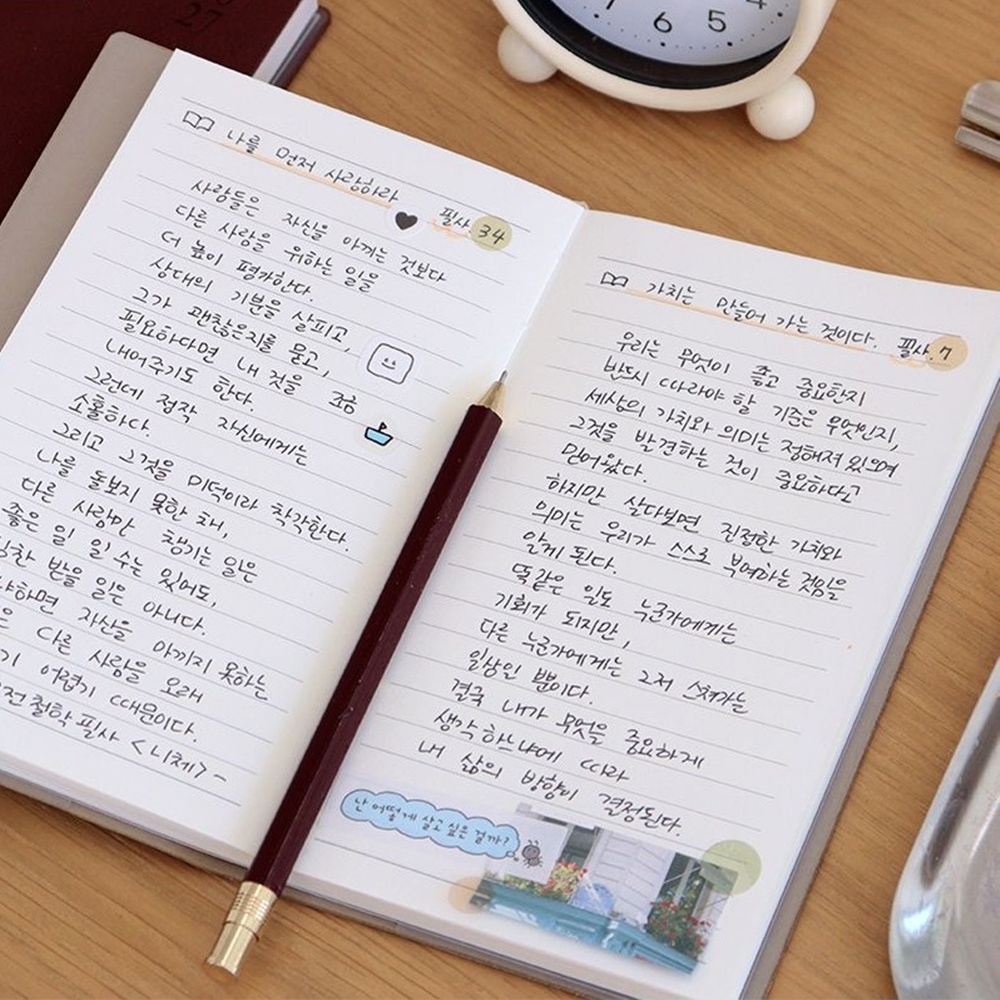 27
7 6 5 4
나를 먼저 사랑하라
필사. 34
사람들은 자신을 아끼는 것보다
다른 사람을 위하는 일을
더 높이 평가한다.
상대의 기분을 살피고,
그가 괜찮은지를 묻고,
필요하다면 내 것을 조금
내어주기도 한다.
그런데 정작 자신에게는
소홀하다.
그리고 그것을 미덕이라 착각한다.
나를 돌보지 못한 채,
다른 사람만 챙기는 일은
좋은 일일 수는 있어도,
칭찬 받을 일은 아니다.
자신을 아끼지 못하는
다른 사람을 오래
어렵기 때문이다.
철학 필사 <니체> -
가치는 만들어 가는 것이다. 필사. 7
우리는 무엇이 좋고 중요한지
반드시 따라야 할 기준은 무엇인지,
세상의 가치와 의미는 정해져 있으며
그것을 발견하는 것이 중요하다고
믿어왔다.
하지만 살다보면 진정한 가치와
의미는 우리가 스스로 부여하는 것임을
알게 된다.
똑같은 일도 누군가에게는
기회가 되지만,
다른 누군가에게는 그저 스쳐가는
일상일 뿐이다.
결국 내가 무엇을 중요하게
생각하느냐에 따라
내 삶의 방향이 결정된다.
난 어떻게 살고 싶은 걸까?